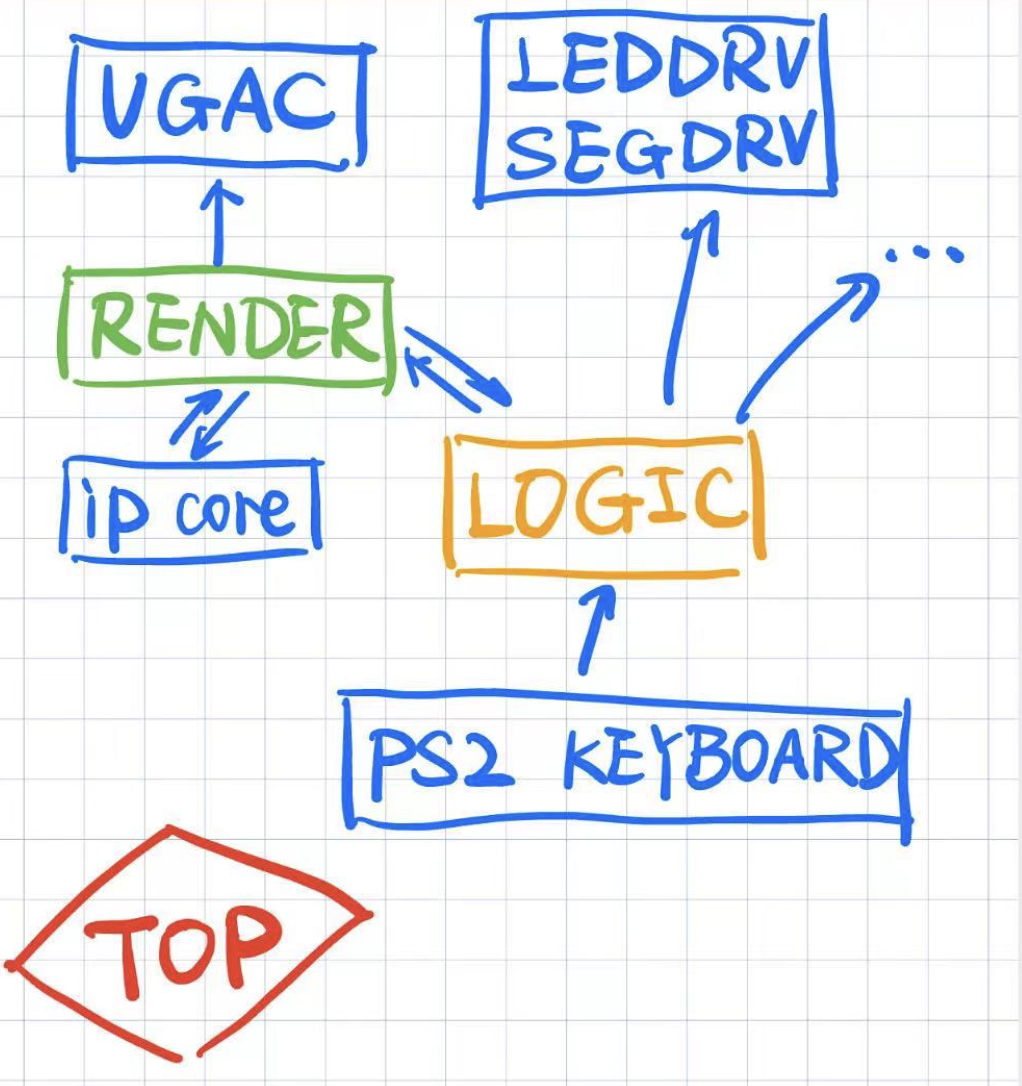 VGAC
LEDDRV
SEGDRV
...
RENDER
ip core
LOGIC
PS2 KEYBOARD
TOP